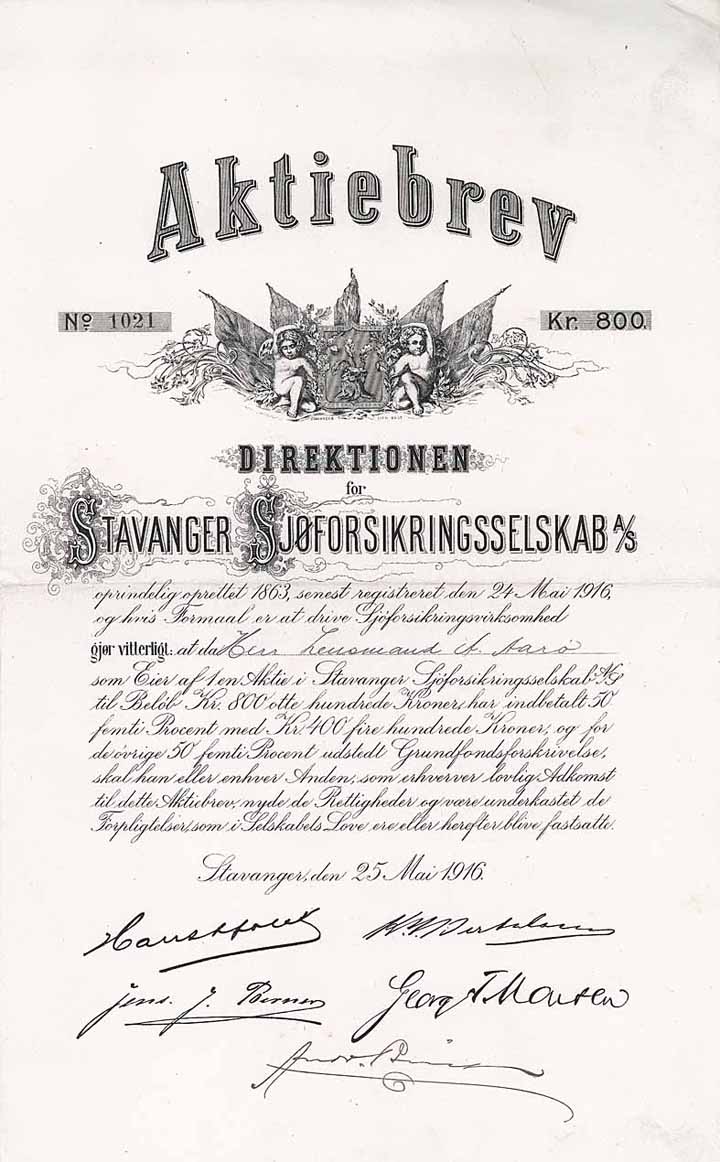 Aktiebrev
No. 1021
Kr. 800.
DIREKTIONEN
for
STAVANGER SJØFORSIKRINGSSELSKAB A/S
oprindelig oprettet 1863, senest registreret den 24 Mai 1916,
og hvis Formaal er at drive Sjöforsikringsvirksomhed
gjør vitterligt: at da Herr Lensmand A. Aarø
som Eier af 1 en Aktie i Stavanger Sjöforsikringsselskab A/S
til Belöb Kr. 800 otte hundrede Kroner, har indbetalt 50
femti Procent med Kr. 400 fire hundrede Kroner, og for
de övrige 50 femti Procent udstedt Grundfondsforskrivelse,
skal han eller enhver Anden, som erhverver lovlig Adkomst
til dette Aktiebrev, nyde de Rettigheder og være underkastet de
Forpligtelser, som i Selskabets Love ere eller herefter blive fastsatte.
Stavanger, den 25 Mai 1916.
Jens. J. Berner
Georg